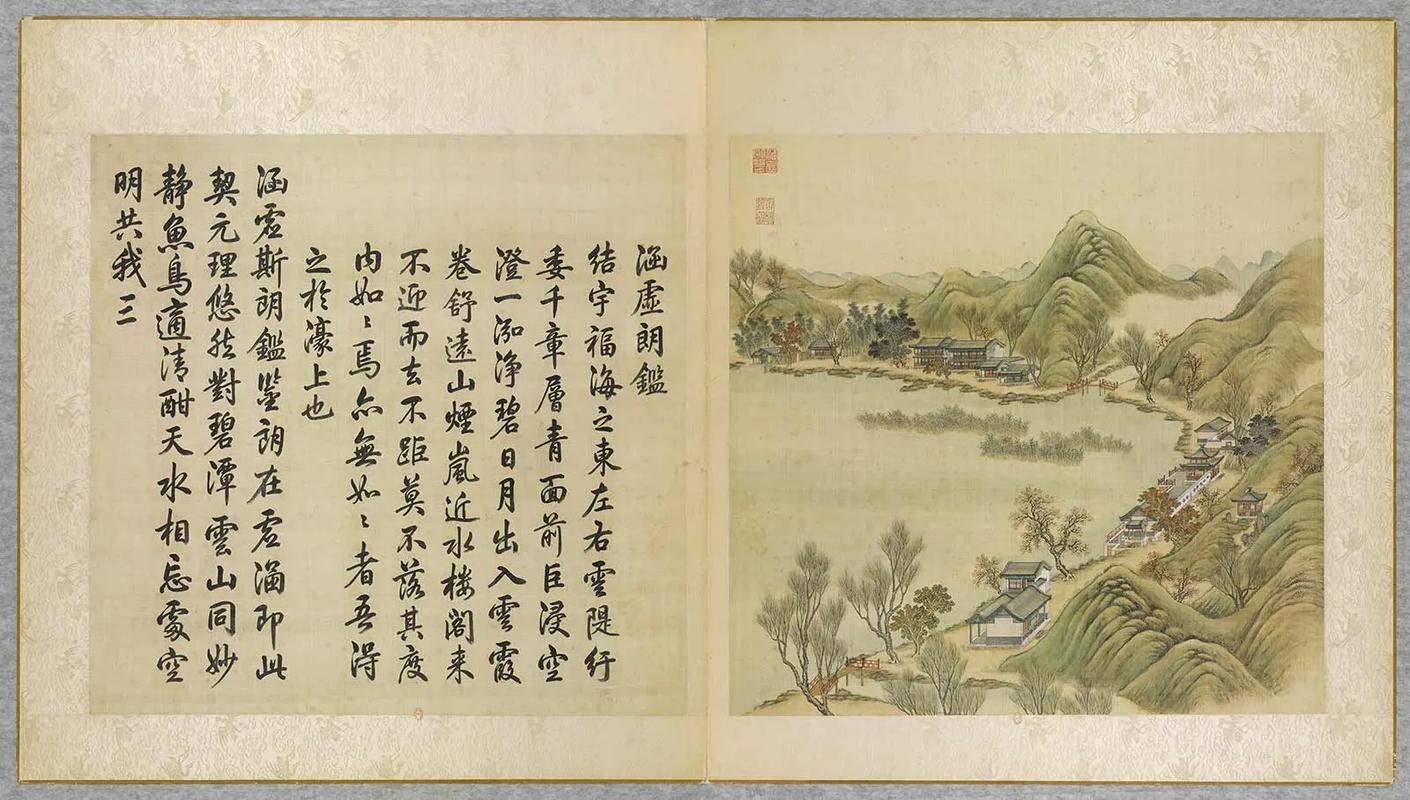 涵虛朗鑑
結宇福海之東左右雲隄紆
委千章層青面前巨浸空
澄一泓淨碧日月出入雲霞
卷舒遠山煙嵐近水樓閣来
不迎而去不距莫不落其度
内如〻焉亦無如〻者吾得
之於濠上也
涵虗斯朗鑑鑒朗在虗涵即此
契元理悠然對碧潭雲山同妙
静魚鳥適清酣天水相忘處空
明共我三